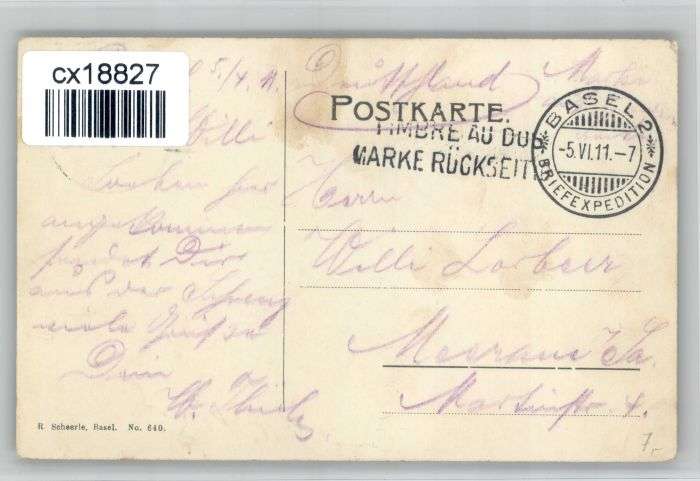 cx18827
5/4. 11.
Willi
Soeben hier
angekommen
sendet Dir
aus der Schweiz
viele Grüße
Dein
POSTKARTE.
TIMBRE AU DOS
MARKE RÜCKSEITE
BASEL 2
-5.VI.11.-7
BRIEFEXPEDITION
Herrn
Willi
Meerane i/Sa.
Martinstr. 4.
R. Scheerle, Basel. No. 640.
7.-